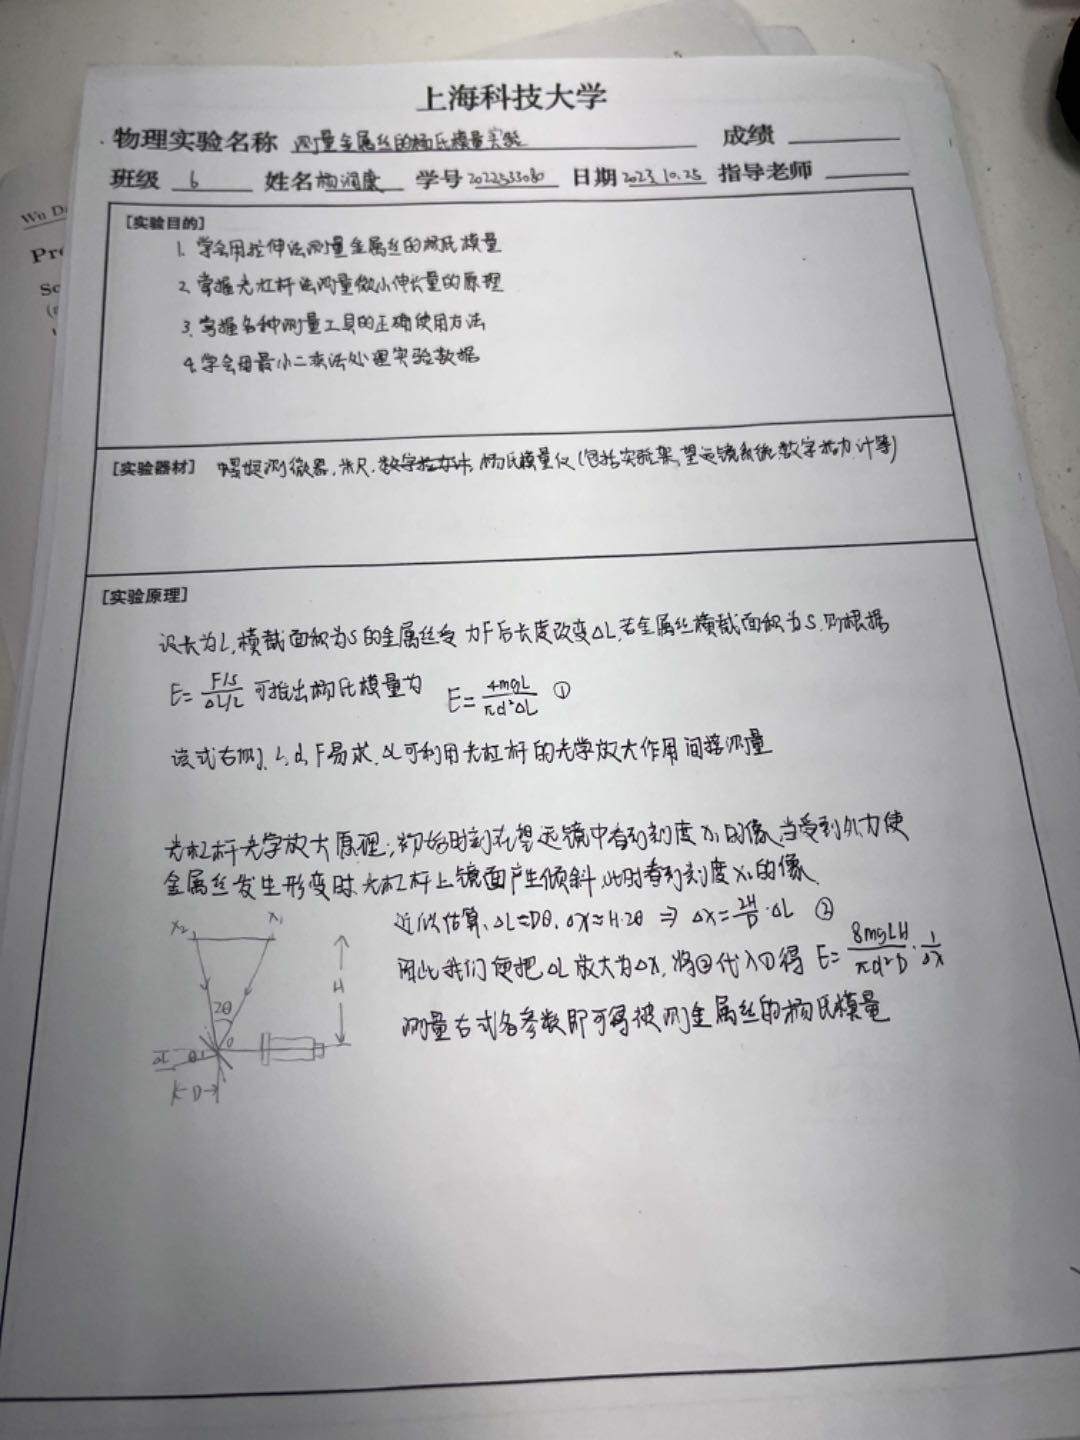 上海科技大学
物理实验名称 测量金属丝的杨氏模量实验 成绩
班级 6 姓名 杨润康 学号 2022533080 日期 2023.10.25 指导老师
Wu D
Pr
Sc
[实验目的]
1. 学会用拉伸法测量金属丝的杨氏模量
2. 掌握光杠杆法测量微小伸长量的原理
3. 掌握各种测量工具的正确使用方法
4. 学会用最小二乘法处理实验数据
[实验器材] 螺旋测微器,米尺,数字拉力计,杨氏模量仪(包括实验架,望远镜系统,数字拉力计等)
[实验原理]
设长为L,横截面积为S的金属丝受力F后长度改变ΔL,若金属丝横截面积为S,则根据
E= F/S / ΔL/L 可推出杨氏模量为 E= 4mgL / πd²ΔL ①
该式右侧,L,d,F易求,ΔL可利用光杠杆的光学放大作用间接测量
光杠杆光学放大原理:初始时刻在望远镜中看到刻度x₁的像,当受到外力使
金属丝发生形变时,光杠杆上镜面产生倾斜,此时看到刻度x₂的像
近似估算,ΔL≈Dθ,Δx≈H·2θ ⇒ Δx= 2H/D ·ΔL ②
因此我们便把ΔL放大为Δx,将②代入①得 E= 8mgLH / πd²D · 1/Δx
测量右式各参数即可得被测金属丝的杨氏模量
x₂ x₁
H
2θ
θ
ΔL θ
D